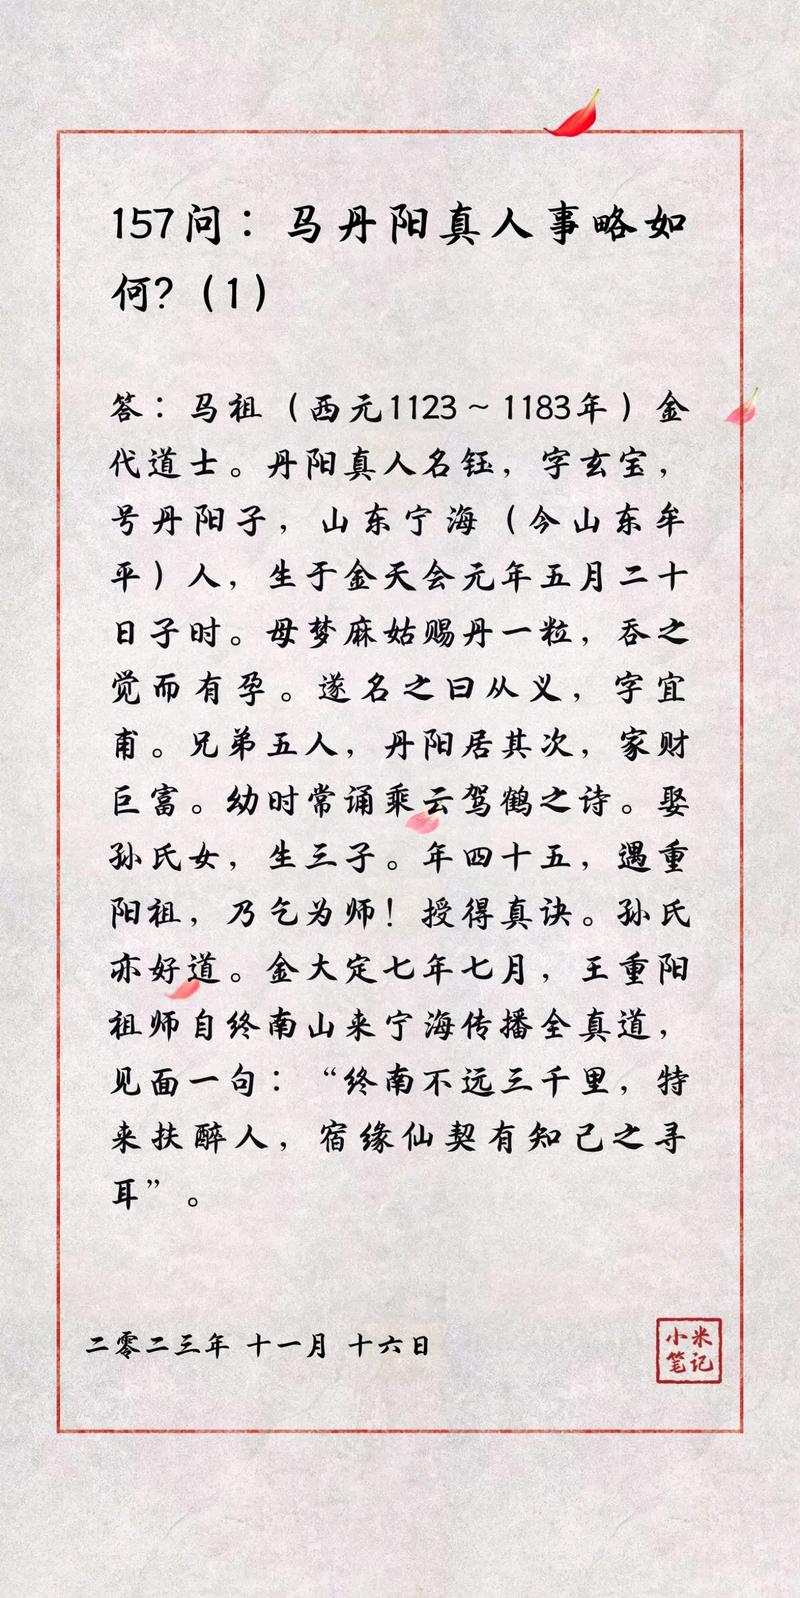 157问：马丹阳真人事略如
何？（1）
答：马祖（西元1123～1183年）金
代道士。丹阳真人名钰，字玄宝，
号丹阳子，山东宁海（今山东牟
平）人，生于金天会元年五月二十
日子时。母梦麻姑赐丹一粒，吞之
觉而有孕。遂名之曰从义，字宜
甫。兄弟五人，丹阳居其次，家财
巨富。幼时常诵乘云驾鹤之诗。娶
孙氏女，生三子。年四十五，遇重
阳祖，乃乞为师！授得真诀。孙氏
亦好道。金大定七年七月，王重阳
祖师自终南山来宁海传播全真道，
见面一句：“终南不远三千里，特
来扶醉人，宿缘仙契有知己之寻
耳”。
二零二三年 十一月 十六日
小米
笔记